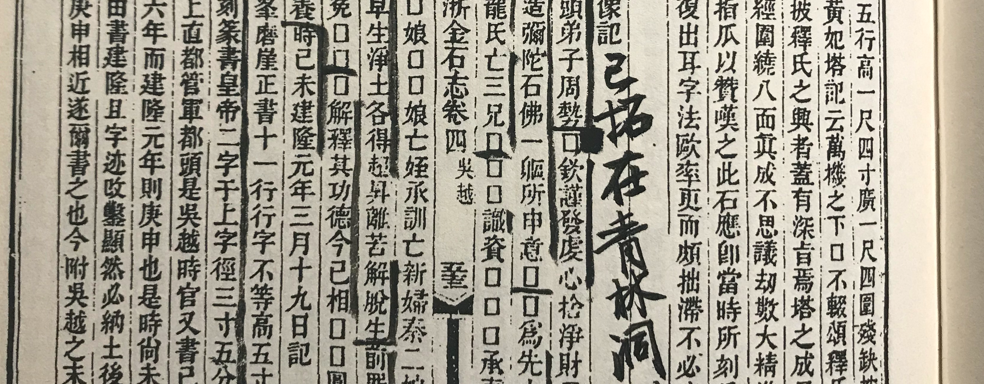 五行高一尺四寸廣一尺四圍殘缺
黃妃塔記云萬機之下口不輟頌釋氏
披釋氏之典者蓋有深旨焉塔之成
經圍繞八面眞成不思議劫數大精進
指爪以贊嘆之此石應卽當時所刻
復出耳字法歐率更而頗拙滯不必
已拓在青林洞
像記
頭弟子周□□欽謹發虔心捨淨財
造彌陀石佛一軀所申意□□爲先
龍氏亡三兄□□□識資□□□□承
浙金石志卷四 吳越
□娘□□□娘亡姪承訓亡新婦秦二娘
早生淨土各得超昇離苦解脫生前
免□□□解釋其功德今已相□□圓
養時己未建隆元年三月十九日記
峯磨崖正書十一行行字不等高五寸
刻篆書皇帝二字于上字徑三寸五分
上直都管軍都頭是吳越時官又書己
六年而建隆元年則庚申也是時尙未
田書建隆且字迹改鑿顯然必納土後
庚申相近遂爾書之也今附吳越之末